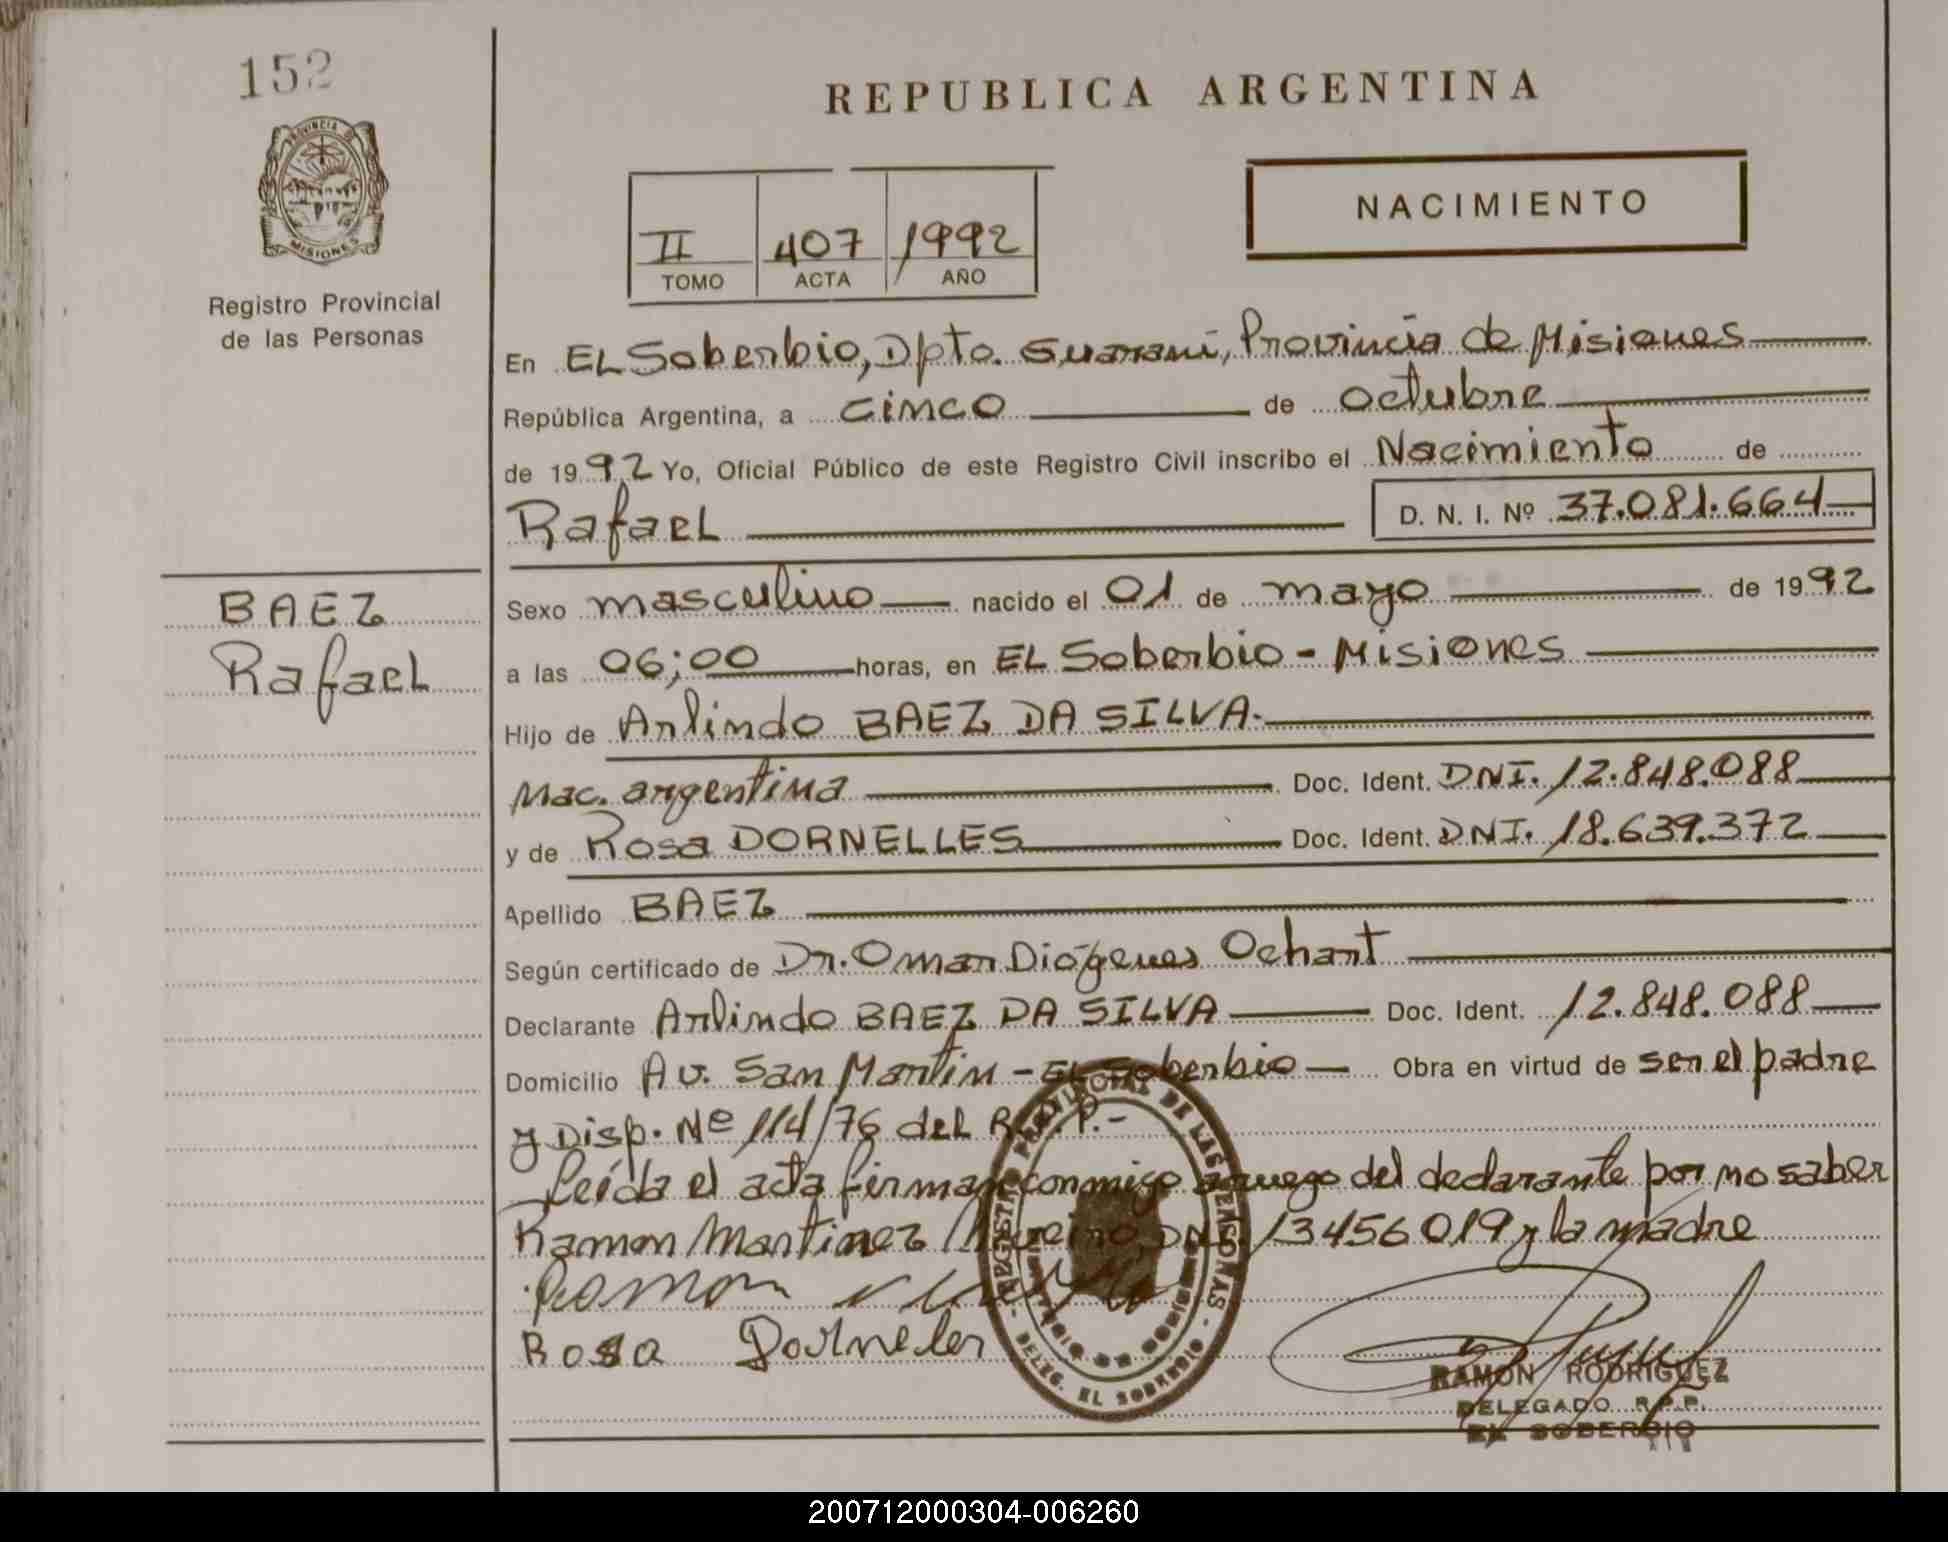 152
REPUBLICA ARGENTINA
PROVINCIA DE
MISIONES
NACIMIENTO
II 407 1992
TOMO ACTA AÑO
Registro Provincial
de las Personas
En EL Soberbio, Dpto. Guarani, Provincia de Misiones
República Argentina, a cinco de octubre
de 1992 Yo, Oficial Público de este Registro Civil inscribo el Nacimiento de
Rafael D. N. I. Nº 37.081.664
BAEZ
Rafael
Sexo masculino nacido el 01 de mayo de 1992
a las 06;00 horas, en EL Soberbio - Misiones
Hijo de Arlindo BAEZ DA SILVA.
Nac. argentina Doc. Ident. DNI. 12.848.088
y de Rosa DORNELLES Doc. Ident. DNI. 18.639.372
Apellido BAEZ
Según certificado de Dr. Omar Diógenes Ochart
Declarante Arlindo BAEZ DA SILVA Doc. Ident. 12.848.088
Domicilio Av. San Martin - EL Soberbio Obra en virtud de ser el padre
y Disp. Nº 114/76 del R.P.P.-
Leída el acta firman conmigo a ruego del declarante por no saber
Ramon Martinez DNI 13456019 y la madre
Ramon
Rosa Dorneles
REGISTRO PROVINCIAL DE LAS PERSONAS
DELEG. EL SOBERBIO
RAMON RODRIGUEZ
DELEGADO R.P.P.
EL SOBERBIO
200712000304-006260